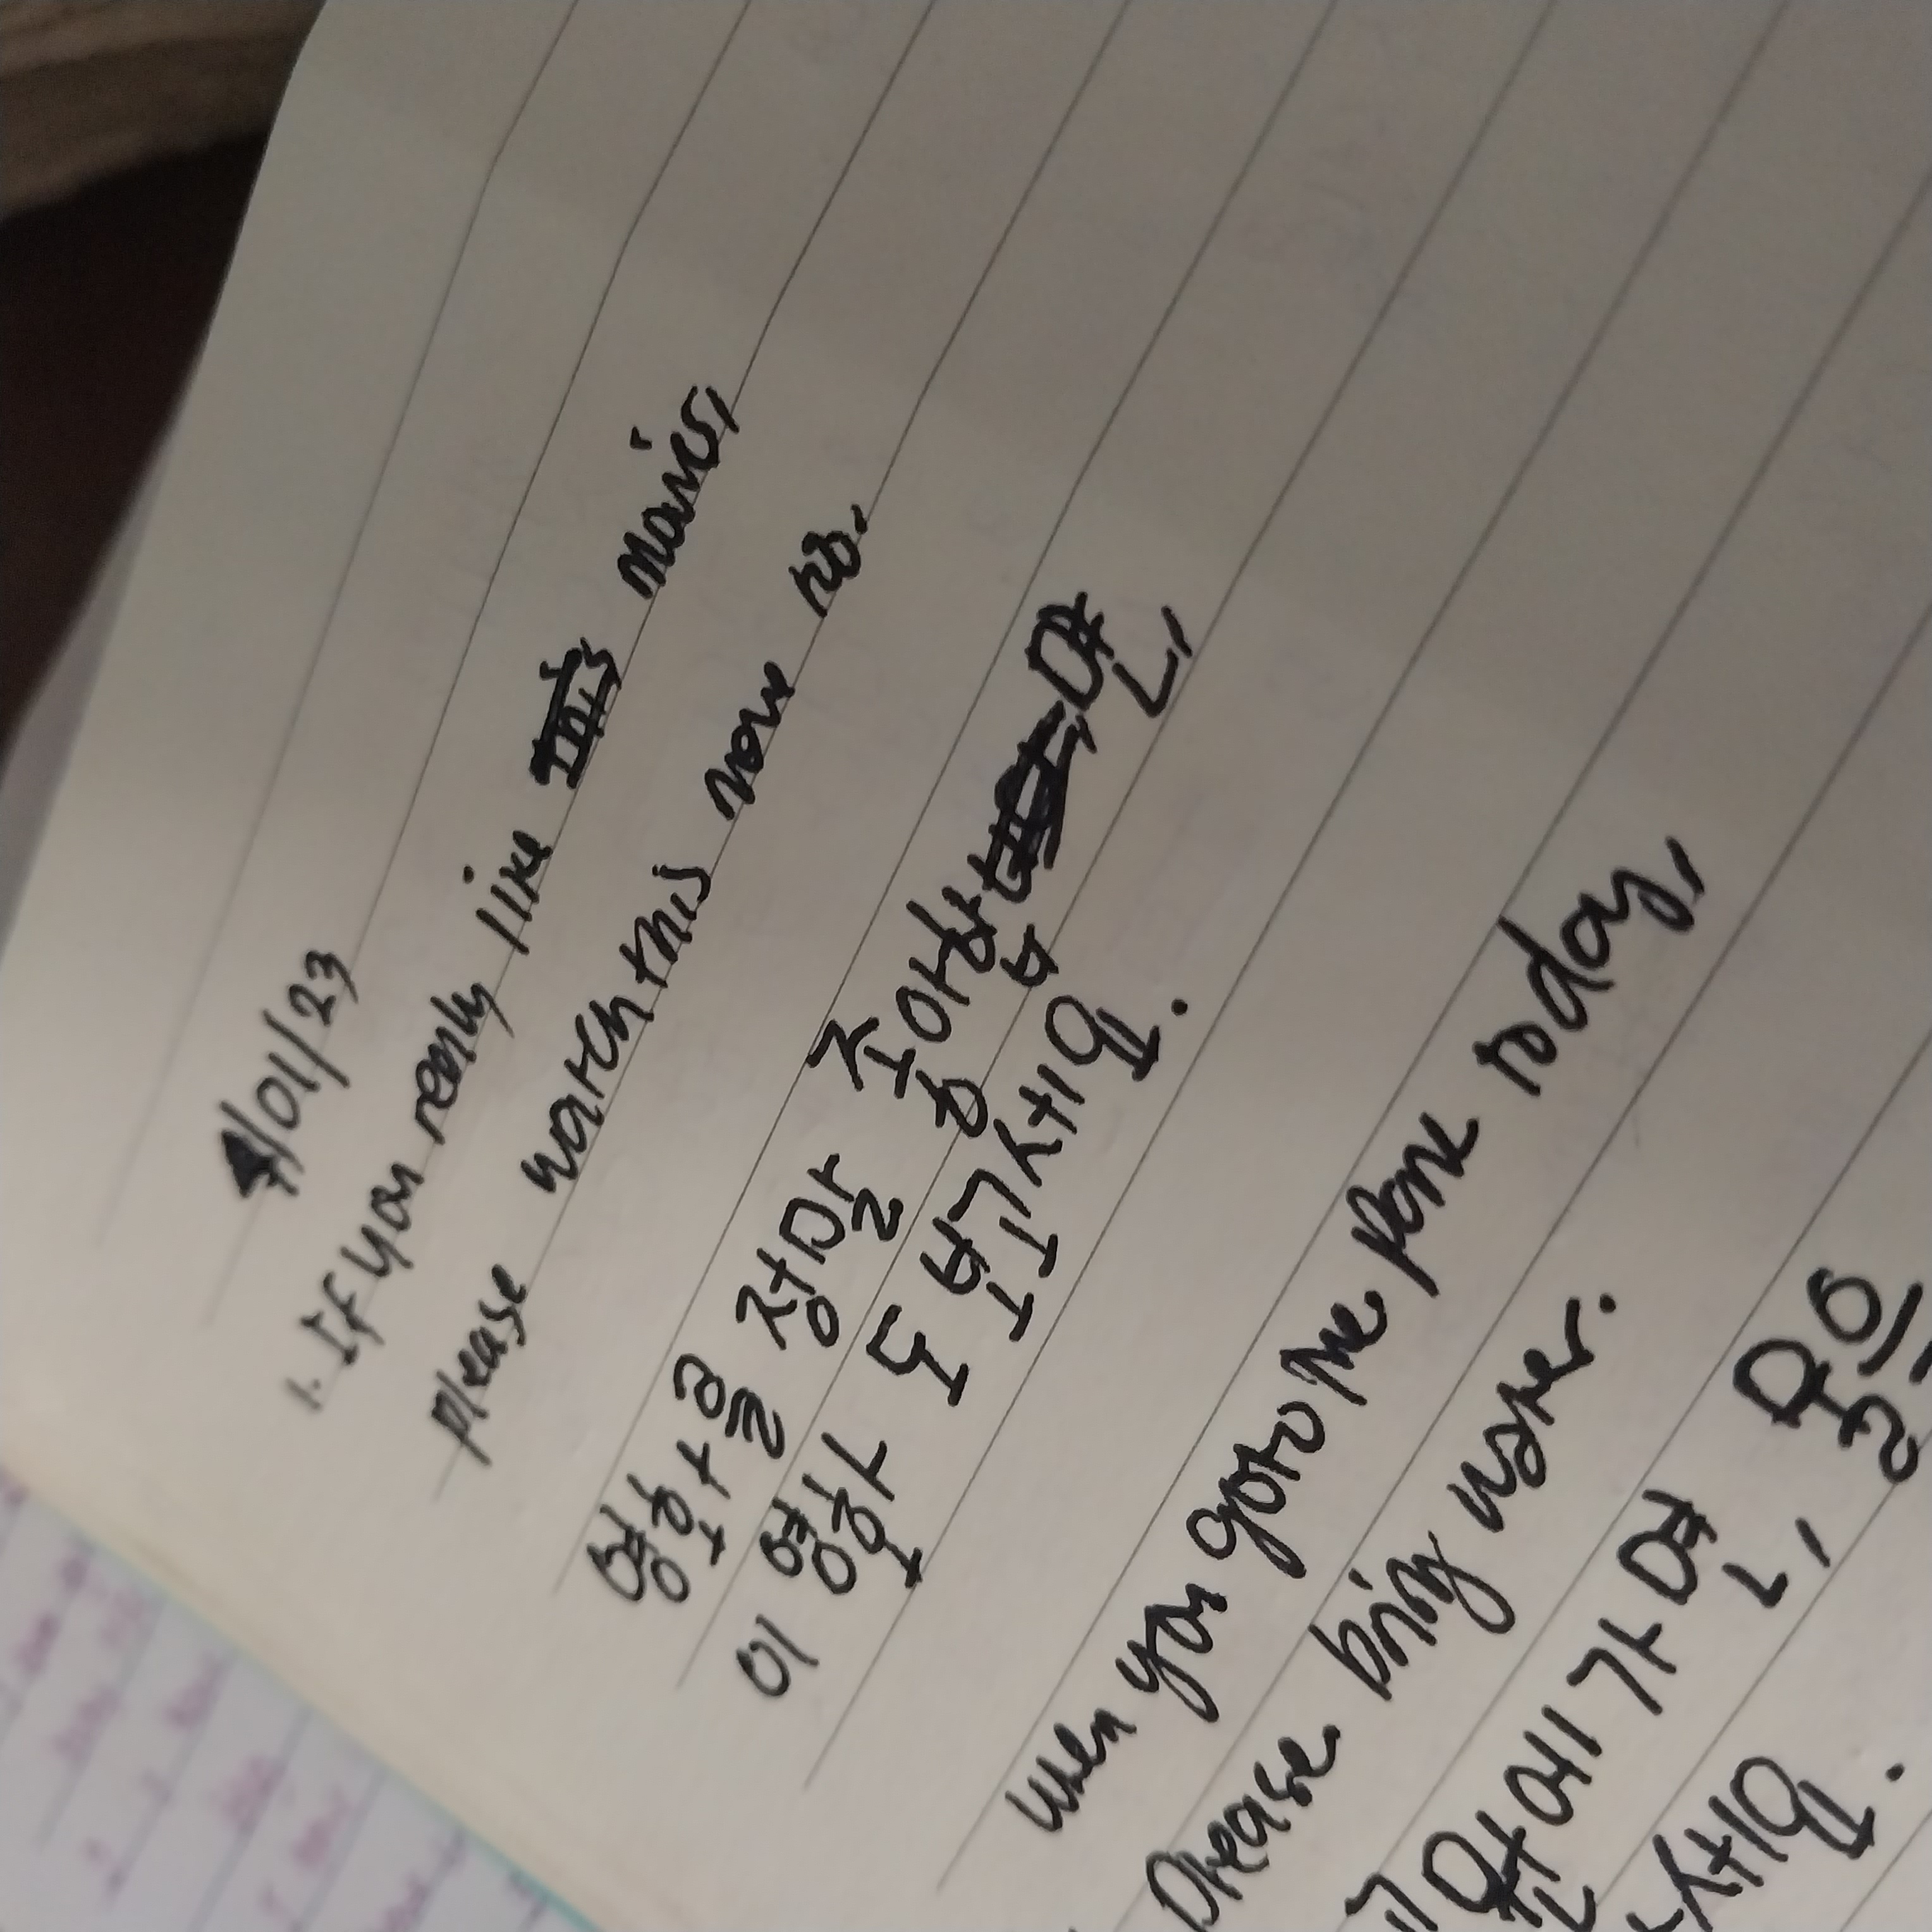 4/01/23
1. If you really like this movies,
please watch this move too.
영화를 정말 종아합면,
이 영화 도 보고세요.
when you go to the park today,
Please bring water.
원에 가면, 물을
세요.